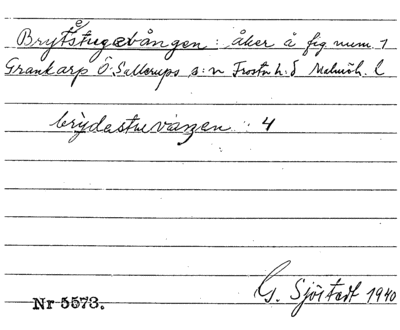 Brytestugevången: åker å fig num. 1
Grankarp Ö. Sallerups s:n Frosta h:d Malmöh. l
brydestuvången 4
G. Sjöstedt 1940
Nr 5573.